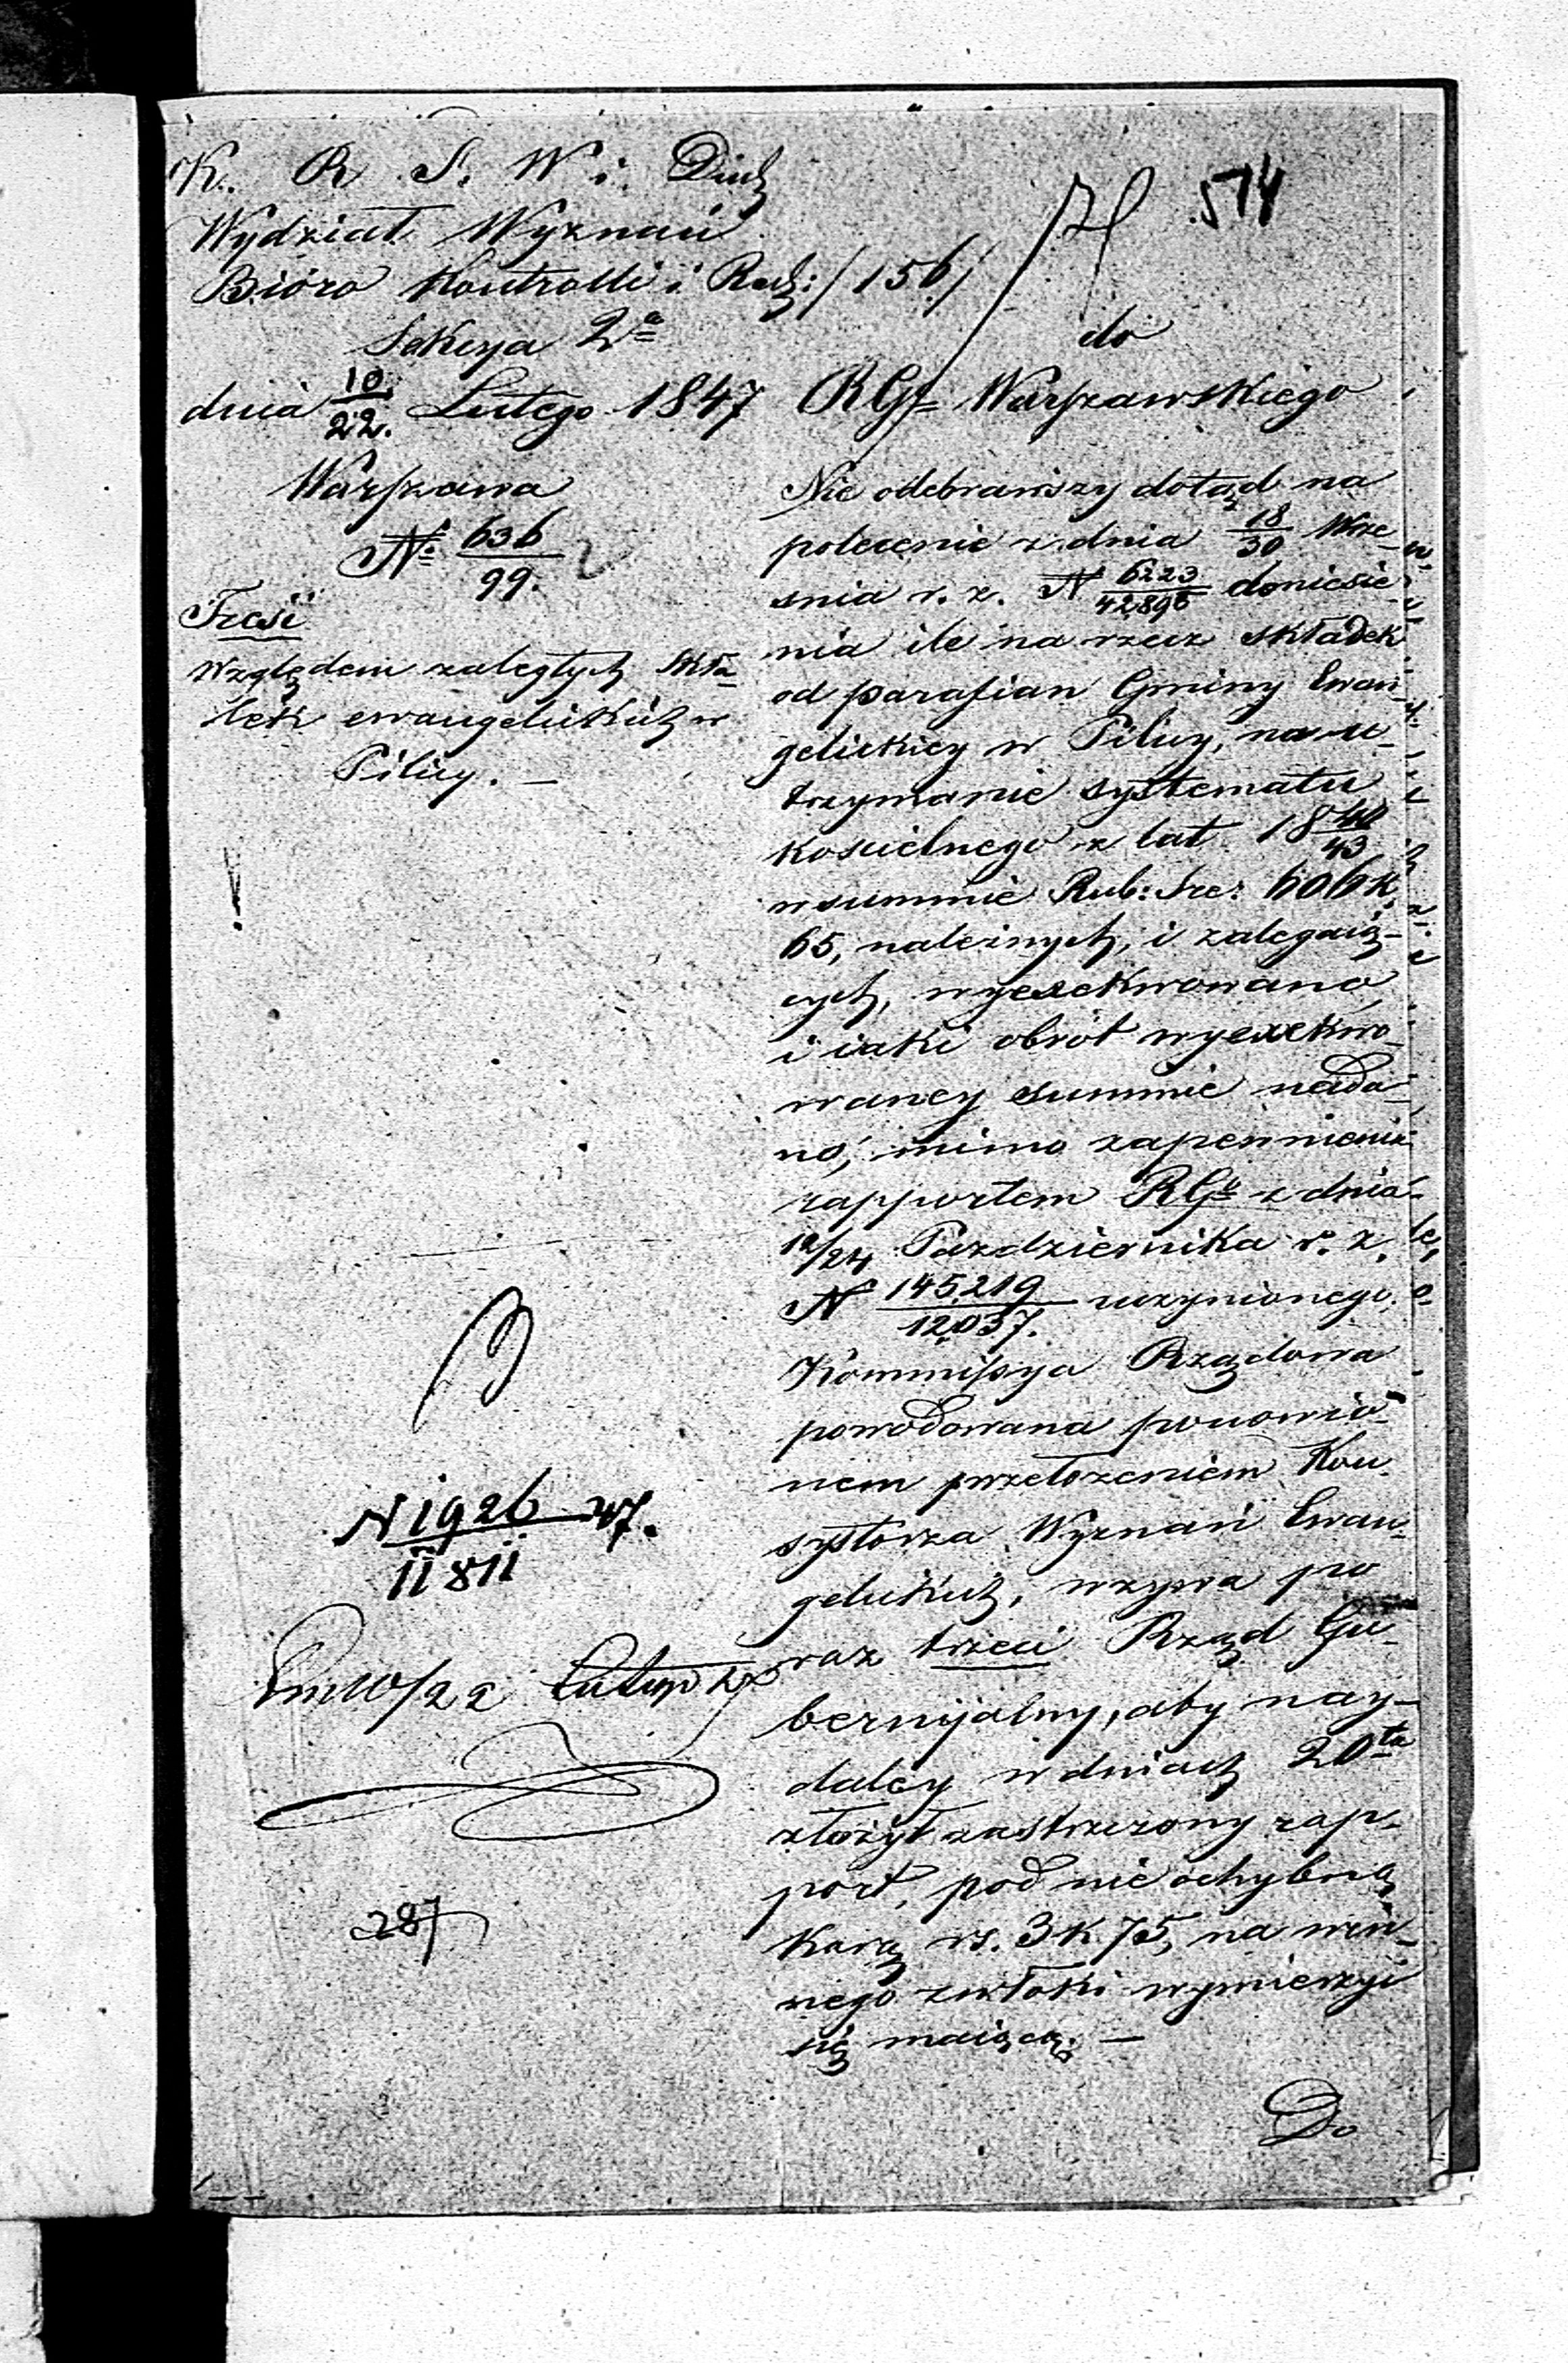 K. R. S. W. i. Duch
Wydział Wyznań
Bióro Kontrolli i Rach: /156/
Sekcya 2ª
dnia 10/22. Lutego 1847
Warszawa
Nº 636/99.
Treść
Względem zaległych skła-
dek ewangelickich w
Pilicy. —
N 1926/11811 47.
10/22 Lutego
287
574
do
RGº Warszawskiego
Nie odebrawszy dotąd na
polecenie z dnia 18/30 Wrze-
śnia r. z. N 6223/42896 doniesie-
nia ile na rzecz składek
od parafian Gminy Ewan-
gelickiey w Pilicy, na u-
trzymanie systematu
kościelnego z lat 1840/43
w summie Rub: Sre: 606 k.
65, należnych, i zalegaią-
cych, wyexekwowano
i iaki obrót wyexekwo-
waney summie nada-
no, mimo zapewnienia
rapportem RGº z dnia
12/24 Pazdziernika r. z.
N 145,219/12,037. uczynionego,
Kommissya Rządowa
powodowana ponowio-
nem przełożeniem Kon-
systorza Wyznań Ewan-
gelickich, wzywa po
raz trzeci Rząd Gu-
bernijalny, aby nay-
daley w dniach 20tu
złożył zastrzeżony rap-
port, pod nieochybną
karą rs. 3 k 75, na win-
nego zwłoki wymierzyć
się maiącą. —
Do